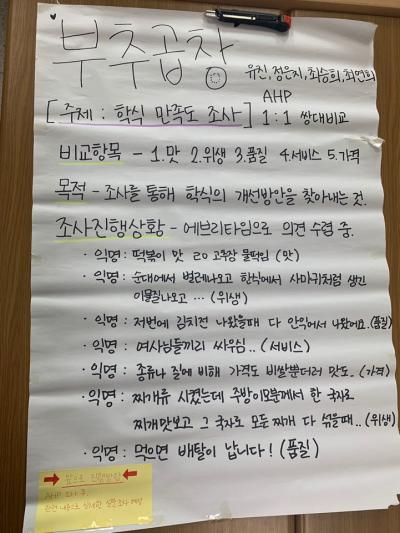 부추곱창
유진, 정은지, 최승희, 최연희
[주제 : 학식 만족도 조사]
AHP
1:1 쌍대비교
비교항목 - 1.맛 2.위생 3.품질 4.서비스 5.가격
목적 - 조사를 통해 학식의 개선방안을 찾아내는 것.
조사진행상황 - 에브리타임으로 의견 수렴 중.
· 익명: 떡볶이 맛 고추장 물떡임 (맛)
· 익명: 순대에서 벌레나오고 한식에서 사마귀처럼 생긴
이물질나오고 … (위생)
· 익명: 저번에 김치전 나왔을때 다 안익어서 나왔어요. (품질)
· 익명: 여사님들끼리 싸우심.. (서비스)
· 익명: 종류나 질에 비해 가격도 비쌀뿐더러 맛도. (가격)
· 익명: 찌개류 시켰는데 주방이모분께서 한 국자로
찌개맛보고 그 국자로 모든 찌개 다 섞을때.. (위생)
· 익명: 먹으면 배탈이 납니다! (품질)
앞으로 진행방향
AHP 조사 후,
관련 내용으로 상세한 설문조사 예정